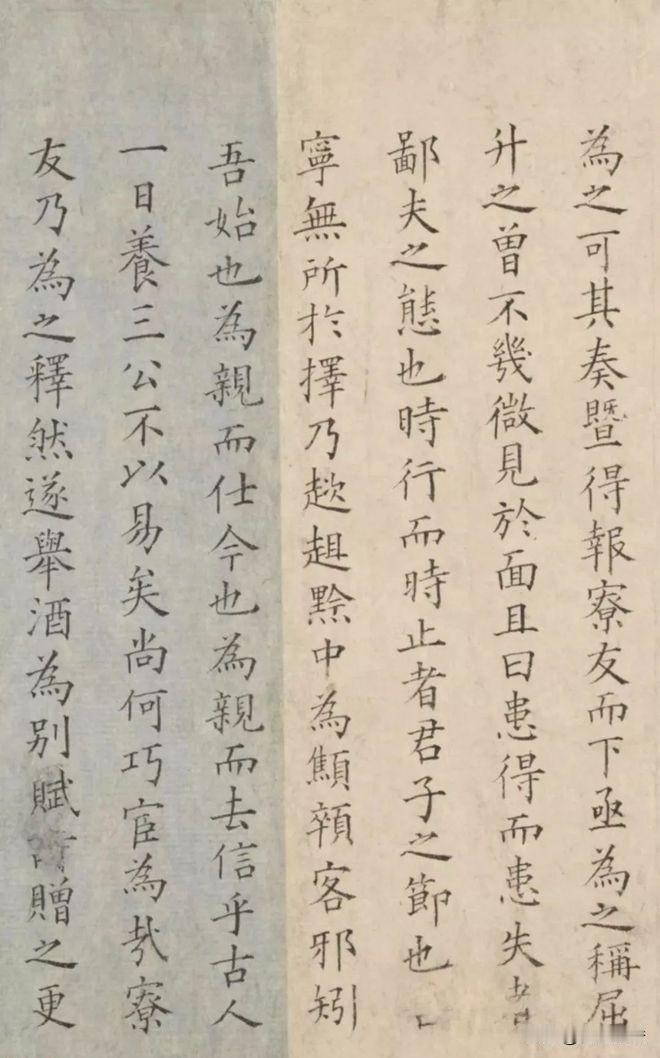 為之可其奏暨得報寮友而下亟為之稱屈
升之曾不幾微見於面且曰患得而患失者
鄙夫之態也時行而時止者君子之節也
寧無所於擇乃趑趄黔中為顦顇客邪矧
吾始也為親而仕今也為親而去信乎古人
一日養三公不以易矣尚何巧宦為哉寮
友乃為之釋然遂舉酒為别賦詩贈之更